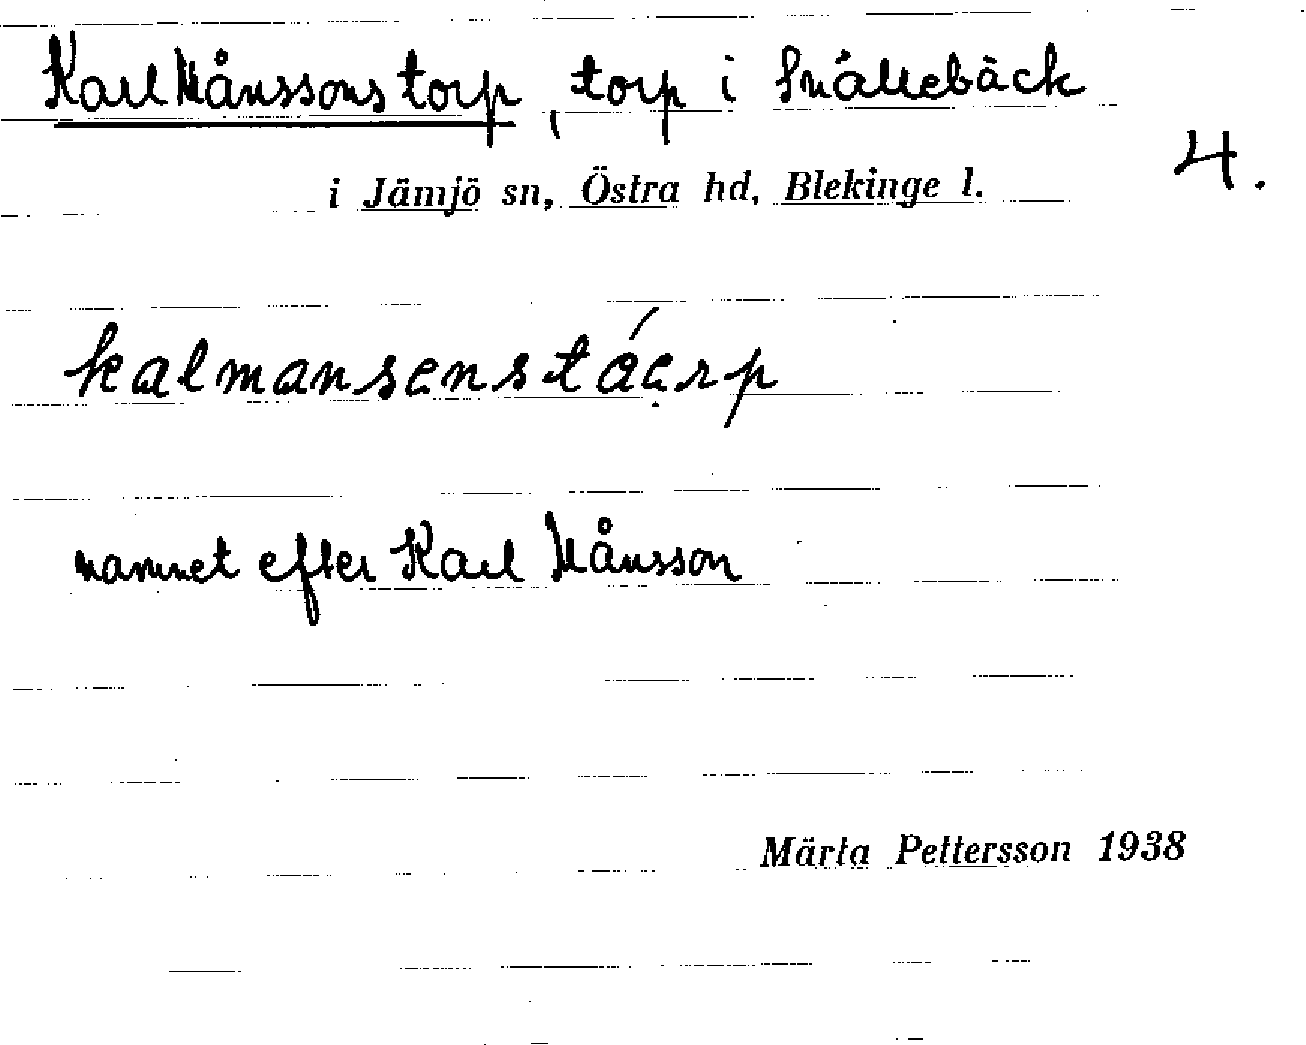 Karl Månssons torp, torp i Snällebäck
4.
i Jämjö sn, Östra hd, Blekinge l.
kalmansenstáerp
namnet efter Karl Månsson
Märta Pettersson 1938